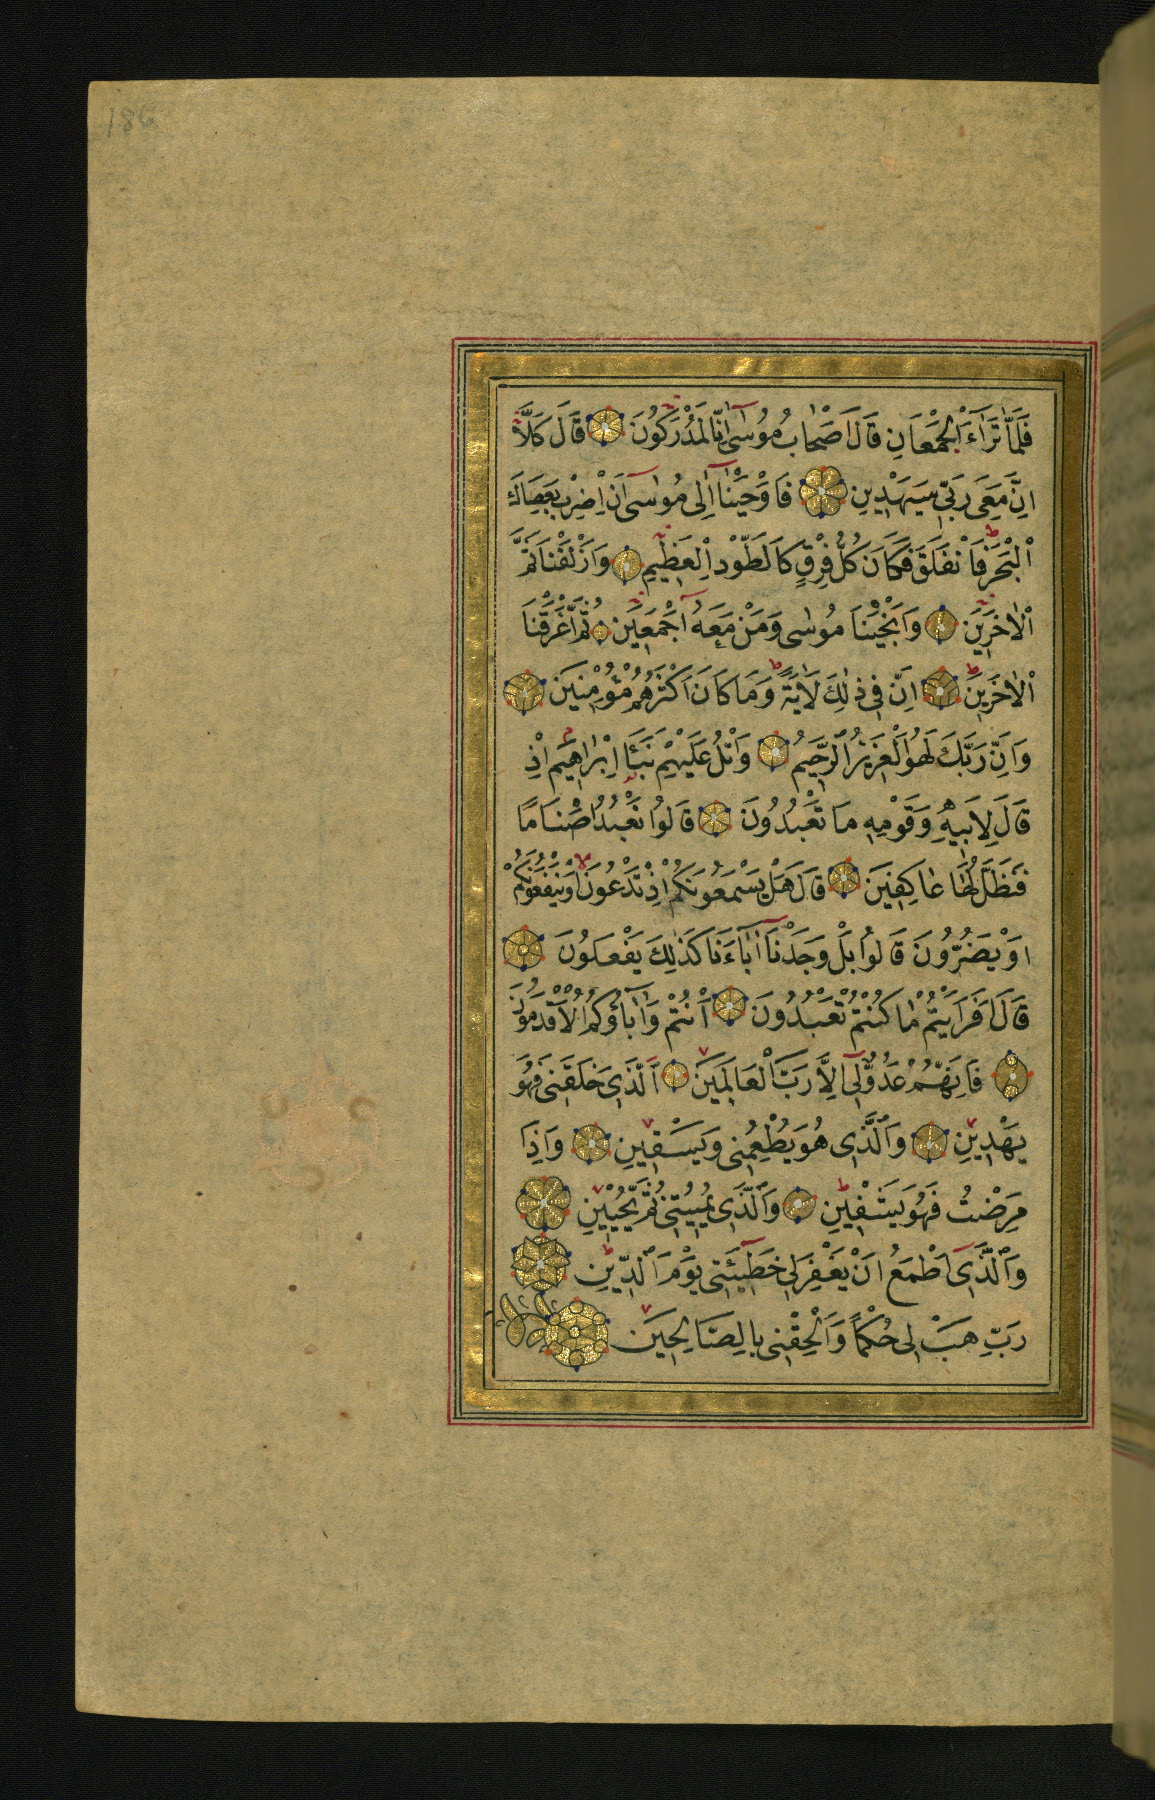 186
فَلَمَّا تَرَاءَ الْجَمْعَانِ قَالَ اَصْحَابُ مُوسٰى اِنَّا لَمُدْرَكُونَ قَالَ كَلَّا
اِنَّ مَعِىَ رَبّٖى سَيَهْدٖينِ فَاَوْحَيْنَا اِلٰى مُوسٰى اَنِ اضْرِبْ بِعَصَاكَ
الْبَحْرَ فَانْفَلَقَ فَكَانَ كُلُّ فِرْقٍ كَالطَّوْدِ الْعَظٖيمِ وَاَزْلَفْنَا ثَمَّ
الْاٰخَرٖينَ وَاَنْجَيْنَا مُوسٰى وَمَنْ مَعَهُ اَجْمَعٖينَ ثُمَّ اَغْرَقْنَا
الْاٰخَرٖينَ اِنَّ فٖى ذٰلِكَ لَاٰيَةً وَمَا كَانَ اَكْثَرُهُمْ مُؤْمِنٖينَ
وَاِنَّ رَبَّكَ لَهُوَ الْعَزٖيزُ الرَّحٖيمُ وَاتْلُ عَلَيْهِمْ نَبَاَ اِبْرٰاهٖيمَ اِذْ
قَالَ لِاَبٖيهِ وَقَوْمِهٖ مَا تَعْبُدُونَ قَالُوا نَعْبُدُ اَصْنَامًا
فَنَظَلُّ لَهَا عَاكِفٖينَ قَالَ هَلْ يَسْمَعُونَكُمْ اِذْ تَدْعُونَ اَوْ يَنْفَعُونَكُمْ
اَوْ يَضُرُّونَ قَالُوا بَلْ وَجَدْنَا اٰبَاءَنَا كَذٰلِكَ يَفْعَلُونَ
قَالَ اَفَرَاَيْتُمْ مَا كُنْتُمْ تَعْبُدُونَ اَنْتُمْ وَاٰبَاؤُكُمُ الْاَقْدَمُونَ
فَاِنَّهُمْ عَدُوٌّ لٖى اِلَّا رَبَّ الْعَالَمٖينَ اَلَّذٖى خَلَقَنٖى فَهُوَ
يَهْدٖينِ وَالَّذٖى هُوَ يُطْعِمُنٖى وَيَسْقٖينِ وَاِذَا
مَرِضْتُ فَهُوَ يَشْفٖينِ وَالَّذٖى يُمٖيتُنٖى ثُمَّ يُحْيٖينِ
وَالَّذٖى اَطْمَعُ اَنْ يَغْفِرَ لٖى خَطٖيئَتٖى يَوْمَ الدّٖينِ
رَبِّ هَبْ لٖى حُكْمًا وَاَلْحِقْنٖى بِالصَّالِحٖينَ